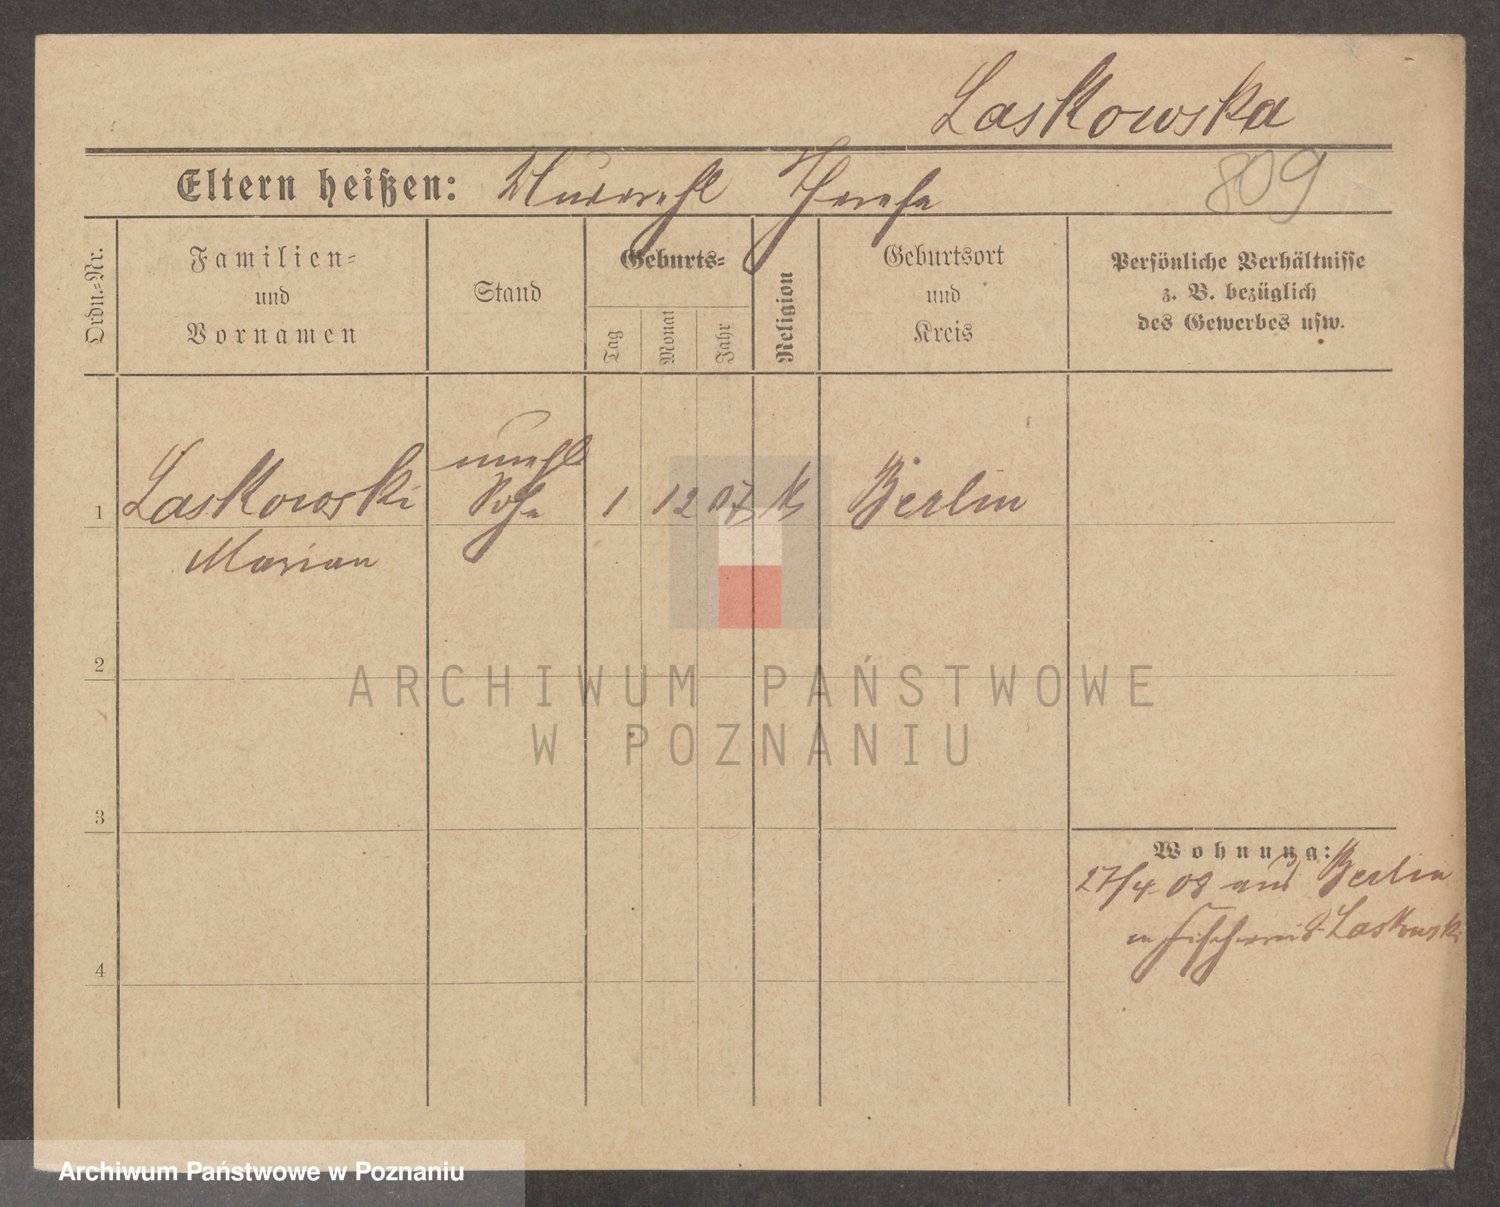 Laskowska
Eltern heißen: Unverehl
809
Ordn.-Nr.
Familien-
und
Vornamen
Stand
Geburts-
Tag
Monat
Jahr
Religion
Geburtsort
und
Kreis
Persönliche Verhältnisse
z. B. bezüglich
des Gewerbes usw.
unehl
1 Laskowski Sohn 1 12 07 K Berlin
Marian
2
ARCHIWUM PAŃSTWOWE
W POZNANIU
3
Wohnung:
27/4 08 aus Berlin
n Fischerei 8 Laskowski
4
Archiwum Państwowe w Poznaniu